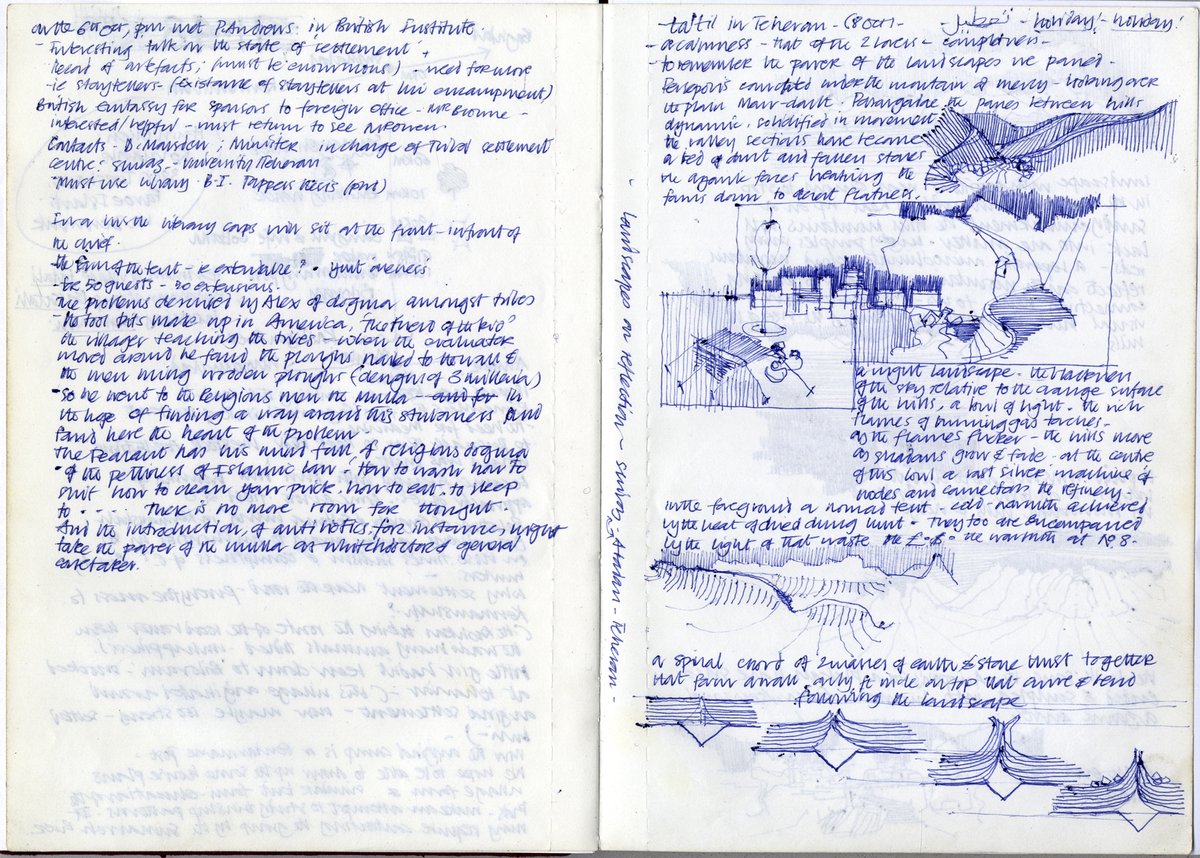 on the 6 Oct, pm met P. Andrews in British Institute
- Interesting talk on the state of settlement,
Record of artefacts, (must be enormous) - need for more
ie storytellers - (Existance of storytellers at his encampment)
British Embassy for sponsors to foreign office - Mr Browne -
interested/helpful - must return to see
Contacts - D. Marsden; Minister in charge of Tribal settlement
centre: Shiraz - University Teheran
- Must use library B-I. Tappers thesis (pnt)
In a the library will sit at the front - in front of
the chief.
- the form of the tent - is extendable?
- for 50 guests - no extensions.
The problems described by Alex of dogma amongst tribes
- the tool bits made up in America,
the villager teaching the tribes - when the evaluator
moved around he found the ploughs nailed to the wall &
the men using wooden ploughs (designs of 3 millenia)
- so he went to the Religious men the Mulla in
the hope of finding a way around this stubborness and
found here the heart of the problem
The Peasant has his mind full of religious dogma
- of the pettiness of Islamic law - How to wash how to
shit how to clean your prick. how to eat, to sleep
to ..... There is no more room for thought
And the introduction, of antibiotics, for instance, might
take the power of the mulla as witchdoctor & general
caretaker.
ta'til in Teheran - (8 Oct) - تعطیل - holiday! - holiday!
- a calmness - that of the 2 lovers - completeness -
- to remember the power of the landscapes we passed -
Persepolis under the mountain of mercy - looking over
the plain Marv-dasht. Pasargadae, the passes between hills
dynamic, solidified in movement
the valley sections have become
a bed of dust and fallen stones
the gigantic faces the
forms down to desert flatness.
landscapes on reflection - Shiraz - Abadan - Kheron -
a night landscape - the blackness
of the sky relative to the orange surface
of the hills, a bowl of light - the rich
flames of burning gas torches -
as the flames flicker - the hills move
as shadows grow & fade - at the centre
of this bowl a vast silver machine of
nodes and connectors the refinery -
in the foreground a nomad tent - cold, warmth achieved
by the heat of dried dung burnt - They too are encompassed
by the light of that waste the the warmth at No. 8.
a spiral chord of 2 masses of earth & stone thrust together
that form a wall, only ft wide on top that curve & bend
following the landscape